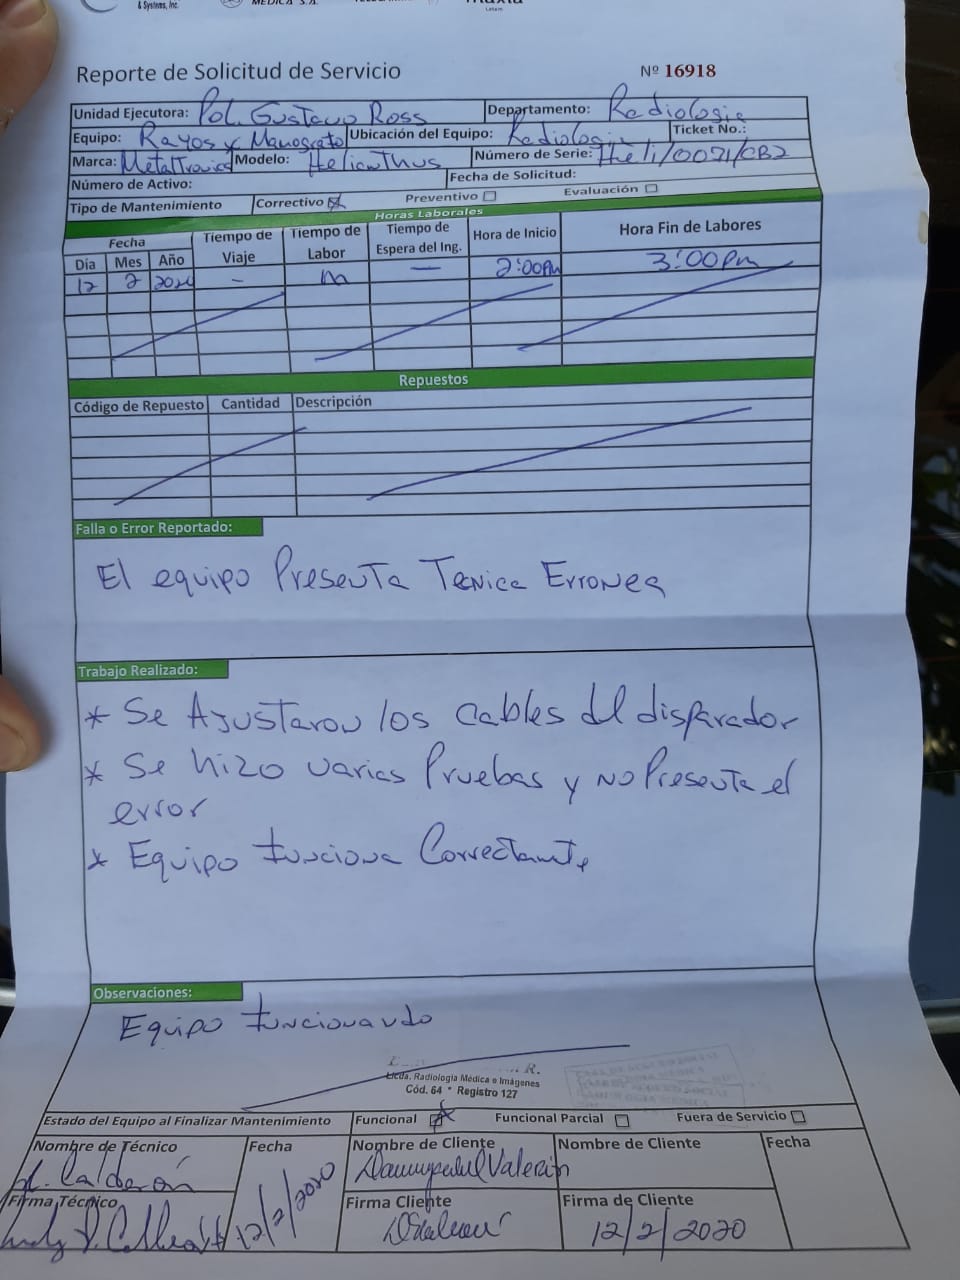 & Systems, Inc.
MEDICA S.A.
Reporte de Solicitud de Servicio
Nº 16918
Unidad Ejecutora: Pol. Gustavo Ross
Departamento: Radiologia
Equipo: Rayos x Mamografo
Ubicación del Equipo: Radiologia
Ticket No.:
Marca: Metaltronica
Modelo: Helianthus
Número de Serie: Heli/0071/CB2
Número de Activo:
Fecha de Solicitud:
Tipo de Mantenimiento
Correctivo
Preventivo
Evaluación
Horas Laborales
Fecha
Tiempo de Viaje
Tiempo de Labor
Tiempo de Espera del Ing.
Hora de Inicio
Hora Fin de Labores
Día Mes Año
12 2 2020 - — 2:00pm 3:00pm
Repuestos
Código de Repuesto Cantidad Descripción
Falla o Error Reportado:
El equipo Presenta Tecnica Erronea
Trabajo Realizado:
* Se Ajustarou los cables del disparador
* Se hizo varias Pruebas y no Presenta el
error
* Equipo funciona Correctamente
Observaciones:
Equipo funcionando
Licda. Radiología Médica e Imágenes
Cód. 64 * Registro 127
Estado del Equipo al Finalizar Mantenimiento
Funcional
Funcional Parcial
Fuera de Servicio
Nombre de Técnico
Fecha
Nombre de Cliente
Nombre de Cliente
Fecha
Calderón
12/2/2020
Valerín
Firma Técnico
Firma Cliente
Firma de Cliente
12/2/2020